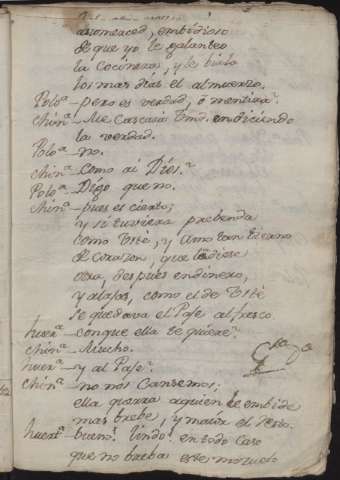 aromeaced, embidioso
de que yo le galanteo
la Cocineras, y le birlo
los mas dias el almuerzo.
Polo.ª - pero es verdad, o mentira?
chin.ª - Me Cascara Vmd. en diciendo
la verdad.
Polo.ª - no.
chin.ª - Como ai Dios?
Polo.ª - Digo que no.
chin.ª - pues es cierto;
y si tuviera prebenda
como Usté, y Amo tan tierno
de Corazon, que la diese
otra, despues en dinero,
y alajas, como el de Usté
se quedava el Paje al fresco
huer.ª - con que ella te quiere?
chin.ª - Mucho.
huer.ª - y al Paje?
chin.ª - no nos Cansemos;
ella querra a quien le embide
mas brebe, y maior el resto.
huert.ª - bueno! lindo! en todo Caso
que no breba este mozuelo